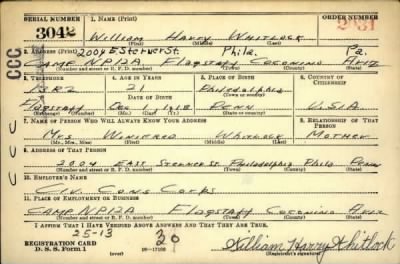 SERIAL NUMBER 1. NAME (Print) ORDER NUMBER
3042 William Harry Whitlock
(First) (Middle) (Last)
2. ADDRESS (Print) 2004 E Sterner St. Phila. Pa.
CAMP NP12A Flagstaff Coconino Ariz
(Number and street or R. F. D. number) (Town) (County) (State)
CCC
3. TELEPHONE 4. AGE IN YEARS 5. PLACE OF BIRTH 6. COUNTRY OF CITIZENSHIP
21 Philadelphia
DATE OF BIRTH
Flagstaff Dec 1, 1918 Penn U.S.A
7. NAME OF PERSON WHO WILL ALWAYS KNOW YOUR ADDRESS 8. RELATIONSHIP OF THAT PERSON
Mrs Winifred Whitlock Mother
9. ADDRESS OF THAT PERSON
2004 East Sterner St. Philadelphia Phila Penn
(Number and street or R. F. D. number) (Town) (County) (State)
10. EMPLOYER'S NAME
Civ. Cons Corps
11. PLACE OF EMPLOYMENT OR BUSINESS
CAMP NP12A Flagstaff Coconino Ariz
(Number and street or R. F. D. number) (Town) (County) (State)
I AFFIRM THAT I HAVE VERIFIED ABOVE ANSWERS AND THAT THEY ARE TRUE.
25-13 30
REGISTRATION CARD
D. S. S. Form 1 (over)
William Harry Whitlock
(Registrant's signature)